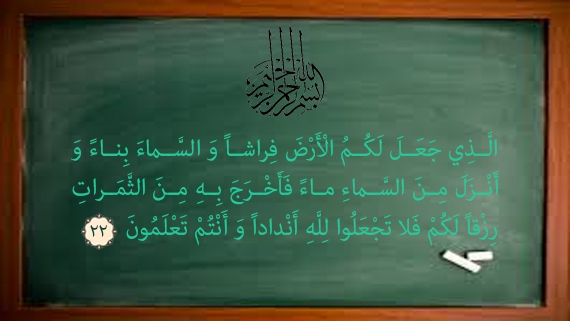 بسم الله الرحمن الرحیم
الَّـذِي جَعَـلَ لَكُـمُ الْأَرْضَ فِراشـاً وَ السَّـماءَ بِناءً وَ
أَنْـزَلَ مِـنَ السَّـماءِ مـاءً فَأَخْـرَجَ بِـهِ مِـنَ الثَّمَـراتِ
رِزْقاً لَكُمْ فَلا تَجْعَلُوا لِلَّهِ أَنْداداً وَ أَنْتُمْ تَعْلَمُونَ ۲۲